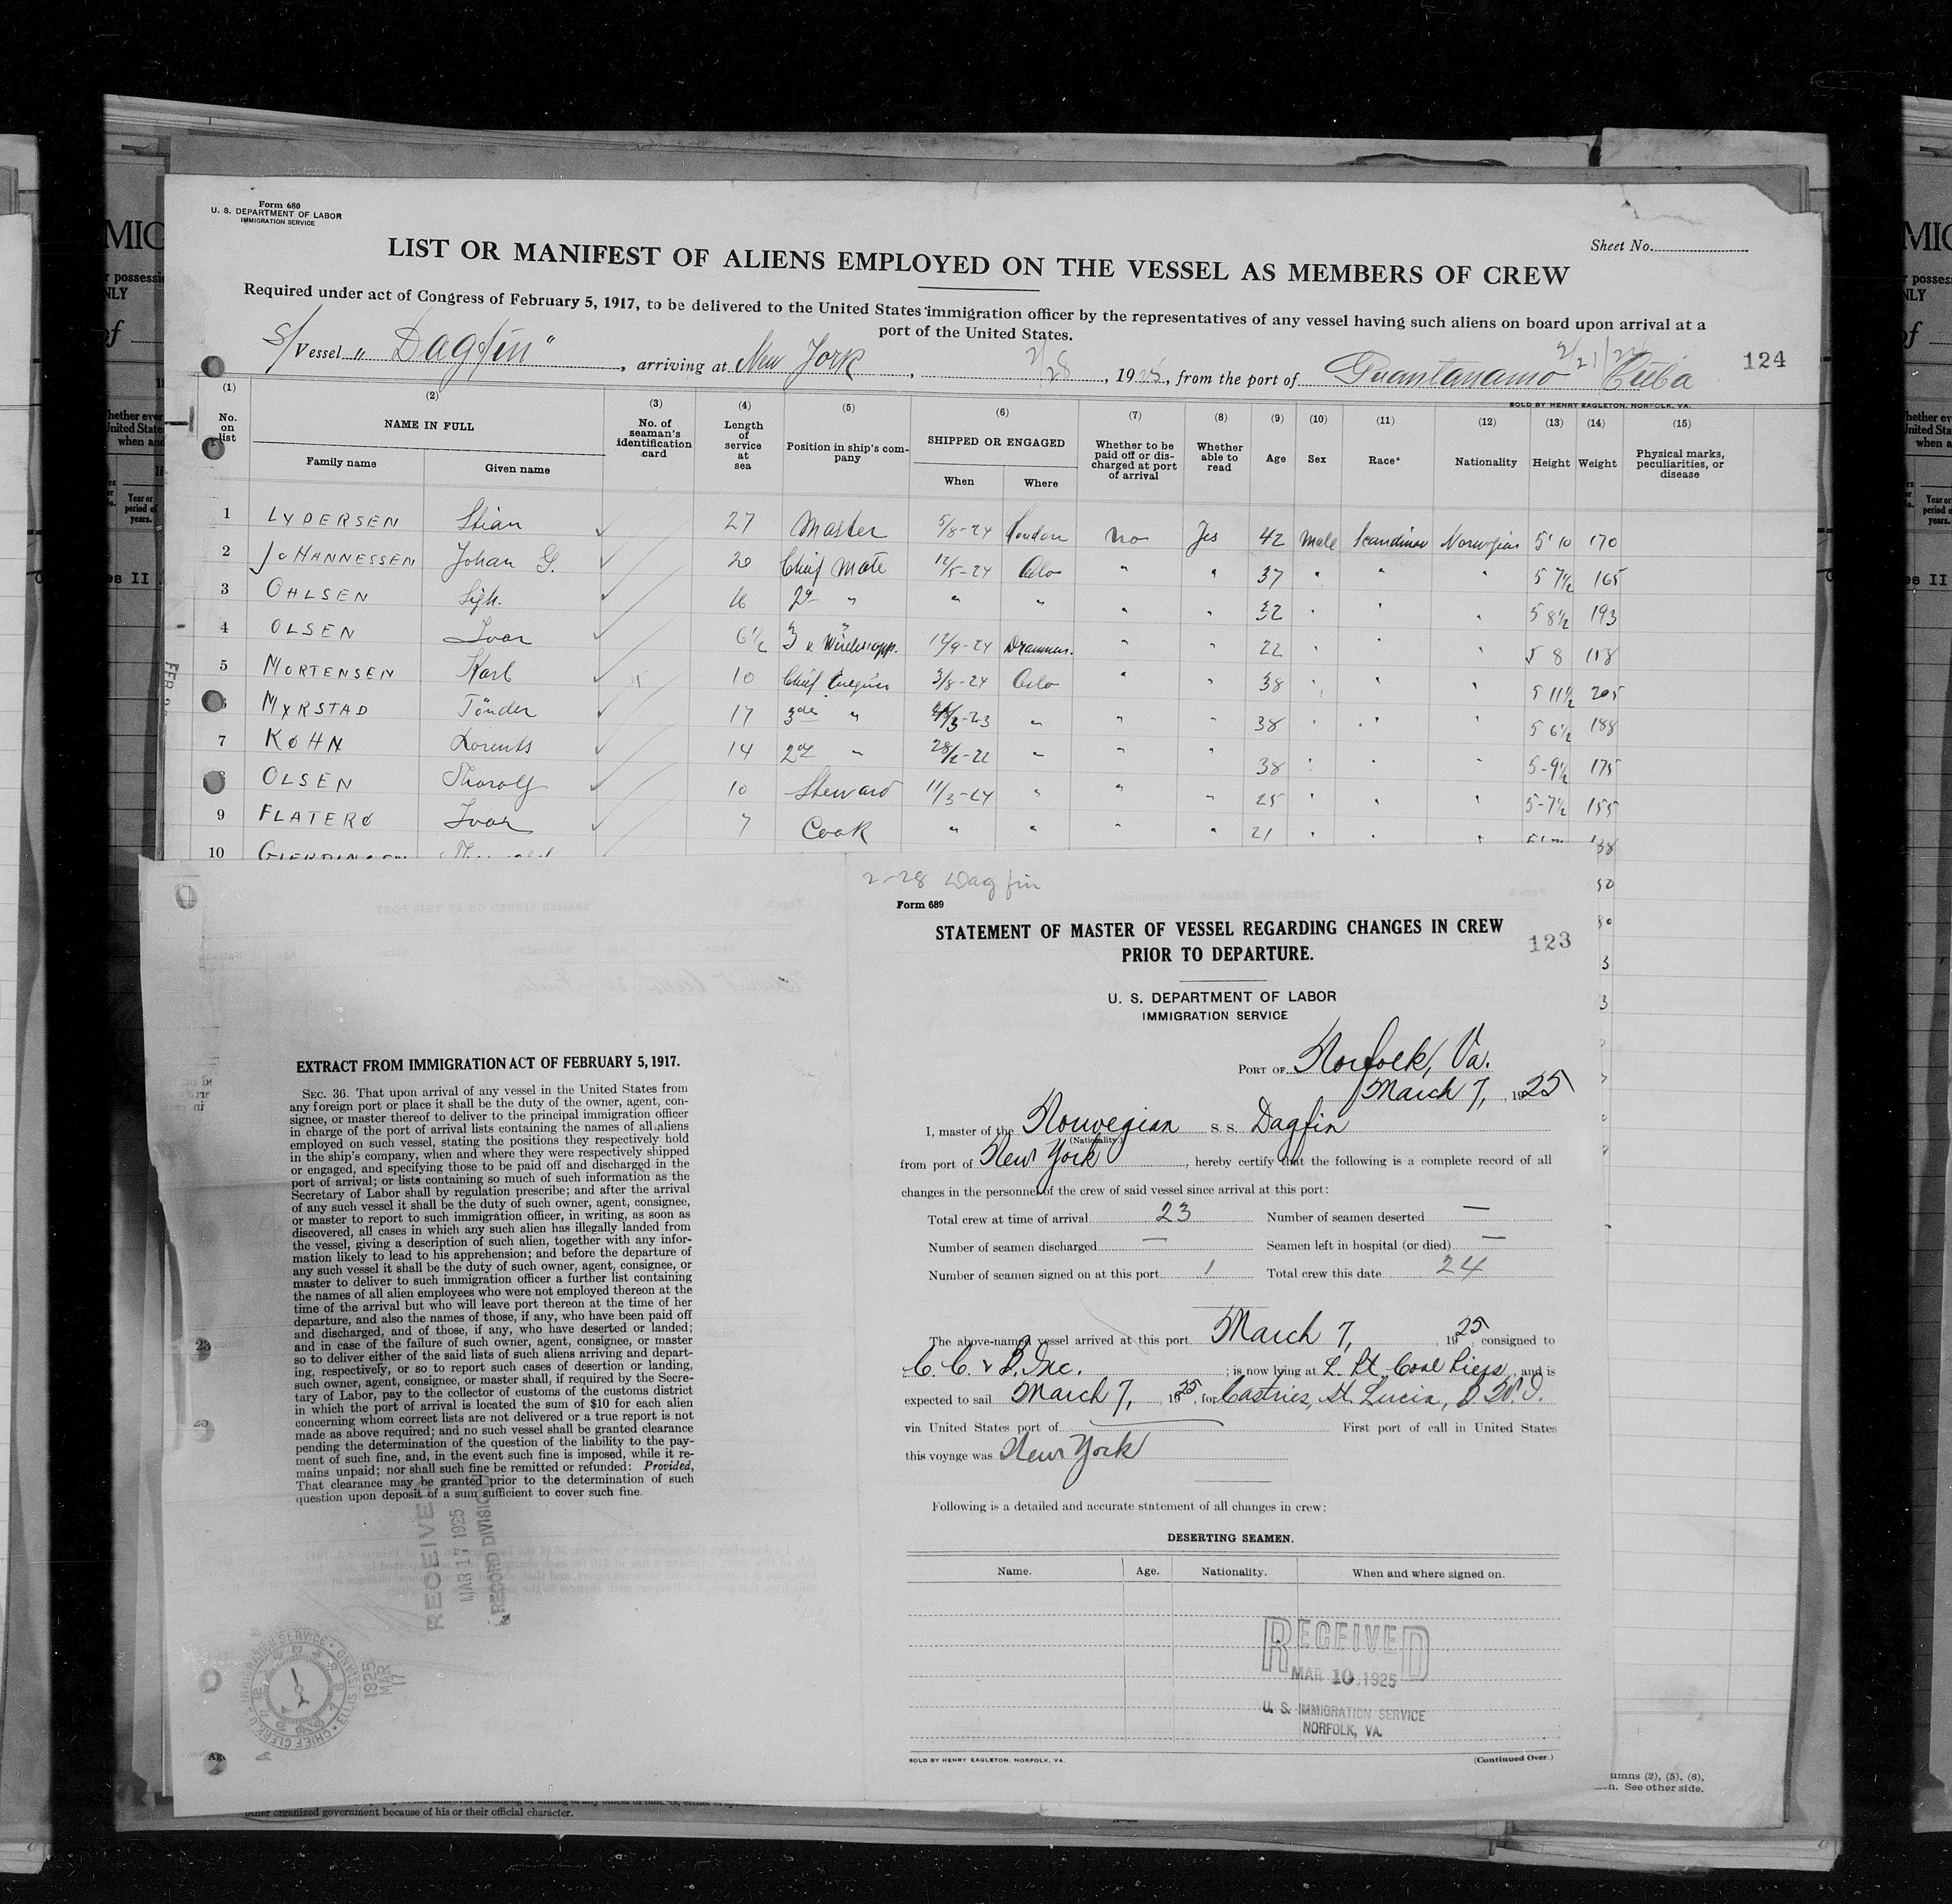 Form 680
U. S. DEPARTMENT OF LABOR
IMMIGRATION SERVICE
Sheet No.
LIST OR MANIFEST OF ALIENS EMPLOYED ON THE VESSEL AS MEMBERS OF CREW
Required under act of Congress of February 5, 1917, to be delivered to the United States immigration officer by the representatives of any vessel having such aliens on board upon arrival at a
port of the United States.
S/ Vessel "Dagfin", arriving at New York, 2/28, 1925, from the port of Guantanamo 2/21/ Cuba
124
SOLD BY HENRY EAGLETON, NORFOLK, VA.
(1) (2) (3) (4) (5) (6) (7) (8) (9) (10) (11) (12) (13) (14) (15)
No. on list NAME IN FULL Family name Given name No. of seaman's identification card Length of service at sea Position in ship's company SHIPPED OR ENGAGED When Where Whether to be paid off or discharged at port of arrival Whether able to read Age Sex Race* Nationality Height Weight Physical marks, peculiarities, or disease
1 LYDERSEN Stian 27 Master 5/8-24 London no Yes 42 Male Scandinav Norwegian 5' 10 170
2 JOHANNESSEN Johan G. 20 Chief Mate 12/5-24 Oslo " " 37 " " " 5 7½ 165
3 OHLSEN Sigh. 16 2d " " " " " 32 " " " 5 8½ 193
4 OLSEN Ivar 6½ 3 " 12/9-24 Drammen. " " 22 " " 5 8 158
5 MORTENSEN Karl 10 Chief Engin 3/8-24 Oslo " " 38 " " " 5 11½ 205
6 MYRSTAD Tönder 17 3de " /3-23 " " " 38 " " " 5 6½ 188
7 KØHN Lorents 14 2de " 28/2-22 " " 38 " " " 5-9½ 175
8 OLSEN Thorolf 10 Steward 11/3-24 " " " 25 " " " 5-7½ 155
9 FLATERØ Ivar 7 Cook " " " " 21 " " "
10
2-28 Dagfin
Form 689
STATEMENT OF MASTER OF VESSEL REGARDING CHANGES IN CREW
PRIOR TO DEPARTURE.
123
U. S. DEPARTMENT OF LABOR
IMMIGRATION SERVICE
PORT OF Norfolk, Va.
March 7, 1925
I, master of the Norwegian S. S. Dagfin
(Nationality.)
from port of New York, hereby certify that the following is a complete record of all
changes in the personnel of the crew of said vessel since arrival at this port:
Total crew at time of arrival 23 Number of seamen deserted —
Number of seamen discharged — Seamen left in hospital (or died) —
Number of seamen signed on at this port 1 Total crew this date 24
The above-named vessel arrived at this port March 7, 1925, consigned to
C. C. & B. Inc.; is now lying at L. Pt. Coal Piers, and is
expected to sail March 7, 1925, for Castries, St. Lucia, B. W. I.
via United States port of — First port of call in United States
this voyage was New York
Following is a detailed and accurate statement of all changes in crew:
DESERTING SEAMEN.
Name. Age. Nationality. When and where signed on.
RECEIVED
MAR 10 1925
U. S. IMMIGRATION SERVICE
NORFOLK, VA.
SOLD BY HENRY EAGLETON, NORFOLK, VA.
(Continued Over.)
EXTRACT FROM IMMIGRATION ACT OF FEBRUARY 5, 1917.
SEC. 36. That upon arrival of any vessel in the United States from
any foreign port or place it shall be the duty of the owner, agent, con-
signee, or master thereof to deliver to the principal immigration officer
in charge of the port of arrival lists containing the names of all aliens
employed on such vessel, stating the positions they respectively hold
in the ship's company, when and where they were respectively shipped
or engaged, and specifying those to be paid off and discharged in the
port of arrival; or lists containing so much of such information as the
Secretary of Labor shall by regulation prescribe; and after the arrival
of any such vessel it shall be the duty of such owner, agent, consignee,
or master to report to such immigration officer, in writing, as soon as
discovered, all cases in which any such alien has illegally landed from
the vessel, giving a description of such alien, together with any infor-
mation likely to lead to his apprehension; and before the departure of
any such vessel it shall be the duty of such owner, agent, consignee, or
master to deliver to such immigration officer a further list containing
the names of all alien employees who were not employed thereon at the
time of the arrival but who will leave port thereon at the time of her
departure, and also the names of those, if any, who have been paid off
and discharged, and of those, if any, who have deserted or landed;
and in case of the failure of such owner, agent, consignee, or master
so to deliver either of the said lists of such aliens arriving and depart-
ing, respectively, or so to report such cases of desertion or landing,
such owner, agent, consignee, or master shall, if required by the Secre-
tary of Labor, pay to the collector of customs of the customs district
in which the port of arrival is located the sum of $10 for each alien
concerning whom correct lists are not delivered or a true report is not
made as above required; and no such vessel shall be granted clearance
pending the determination of the question of the liability to the pay-
ment of such fine, and, in the event such fine is imposed, while it re-
mains unpaid; nor shall such fine be remitted or refunded: Provided,
That clearance may be granted prior to the determination of such
question upon deposit of a sum sufficient to cover such fine.
RECEIVED
MAR 17 1925
RECORD DIVISION
1925
MAR
17
umns (2), (5), (6),
See other side.
other organized government because of his or their official character.